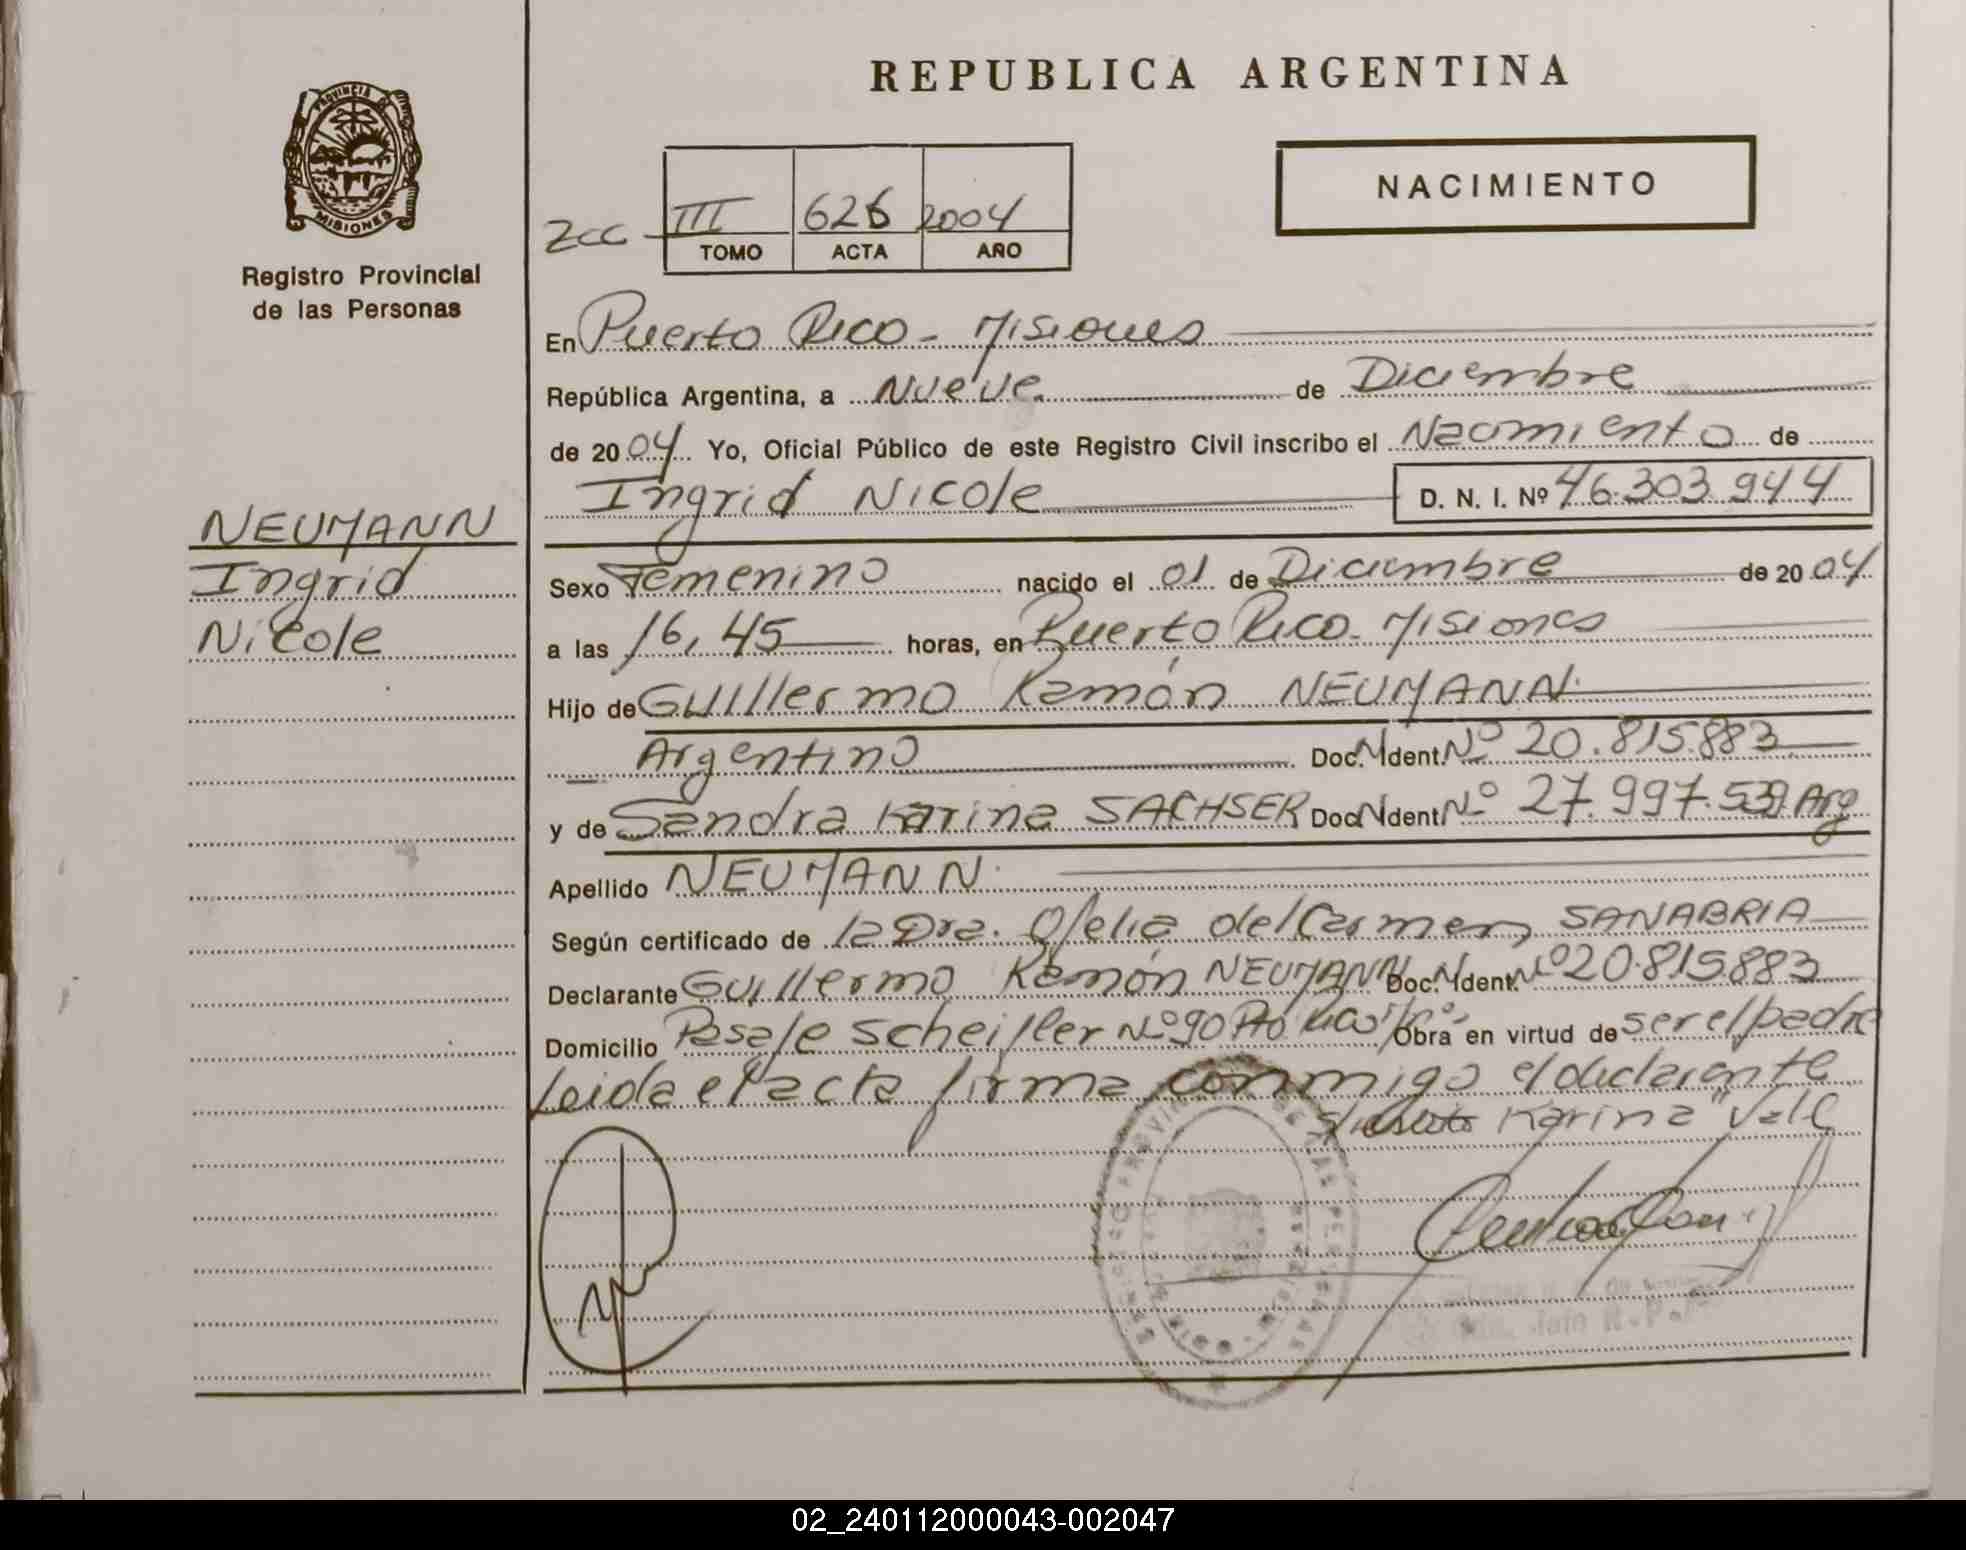 REPUBLICA ARGENTINA
PROVINCIA DE
MISIONES
Registro Provincial
de las Personas
NACIMIENTO
III 626 2004
TOMO ACTA AÑO
En Puerto Rico - Misiones
República Argentina, a Nueve de Diciembre
de 2004 Yo, Oficial Público de este Registro Civil inscribo el Nacimiento de
Ingrid Nicole D. N. I. Nº 46.303.944
NEUMANN
Ingrid
Nicole
Sexo Femenino nacido el 01 de Diciembre de 2004
a las 16,45 horas, en Puerto Rico - Misiones
Hijo de Guillermo Ramón NEUMANN
Argentino Doc. Ident. Nº 20.815.883
y de Sandra Karina SACHSER Doc. Ident. Nº 27.997.539 Arg
Apellido NEUMANN
Según certificado de la Dra. Ofelia del Carmen SANABRIA
Declarante Guillermo Ramón NEUMANN Doc. Ident. Nº 20.815.883
Domicilio Pasaje Scheifler Nº 90 Pto Rico Obra en virtud de ser el padre
Leida el acta firma conmigo el declarante
Karina" Vale
02_240112000043-002047